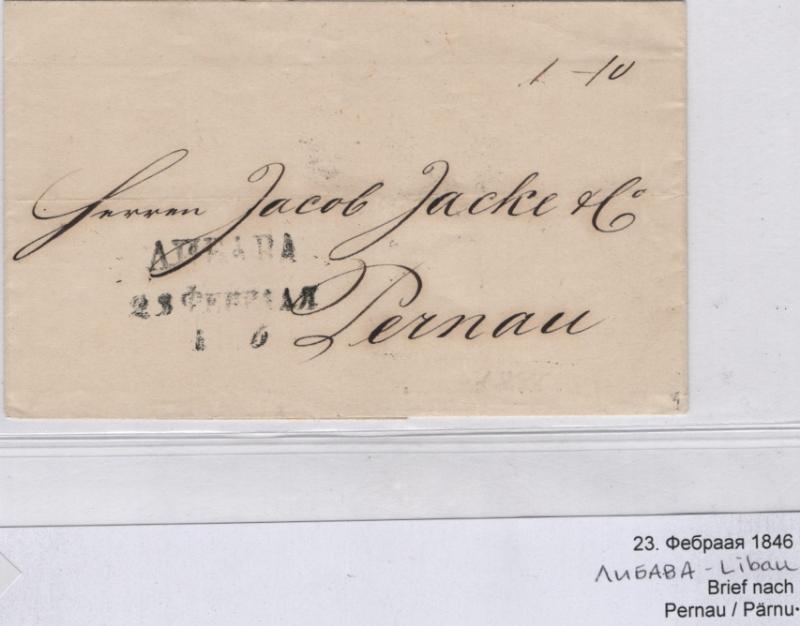 1 – 10
Herren Jacob Jacke & Co
ЛИБАВА
23 ФЕВРАЛЯ
1 6
Pernau
23. Фебраая 1846
ЛИБАВА - Libau
Brief nach
Pernau / Pärnu.